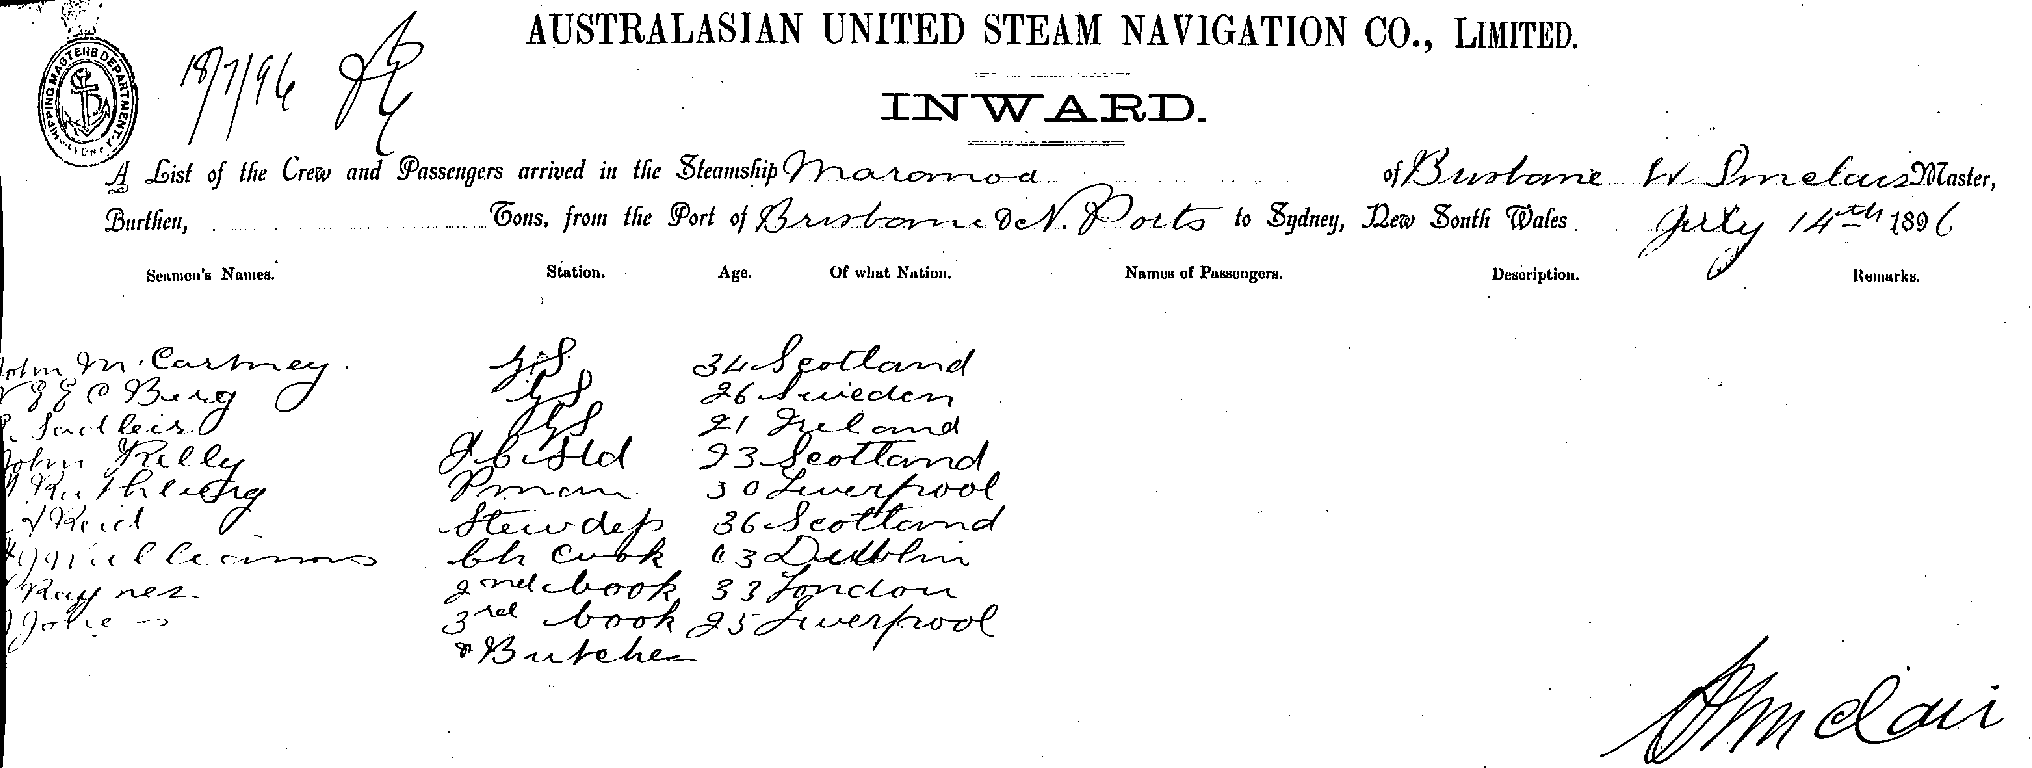 AUSTRALASIAN UNITED STEAM NAVIGATION CO., LIMITED.
SHIPPING MASTERS DEPARTMENT
18/7/96
INWARD.
A List of the Crew and Passengers arrived in the Steamship Maranoa of Brisbane W Sinclair Master,
Burthen, Tons, from the Port of Brisbane & N. Ports to Sydney, New South Wales. July 14th 1896
Seamen's Names. Station. Age. Of what Nation. Names of Passengers. Description. Remarks.
John McCartney. 34 Scotland
Berg 26 Sweden
Sadleir 21 Ireland
John Kelly 23 Scotland
Pman 30 Liverpool
Reid Stewdep 36 Scotland
Williams Ch Cook Dublin
Raynes 2nd Cook 33 London
Jones 3rd Cook 25 Liverpool
& Butcher
Sinclair